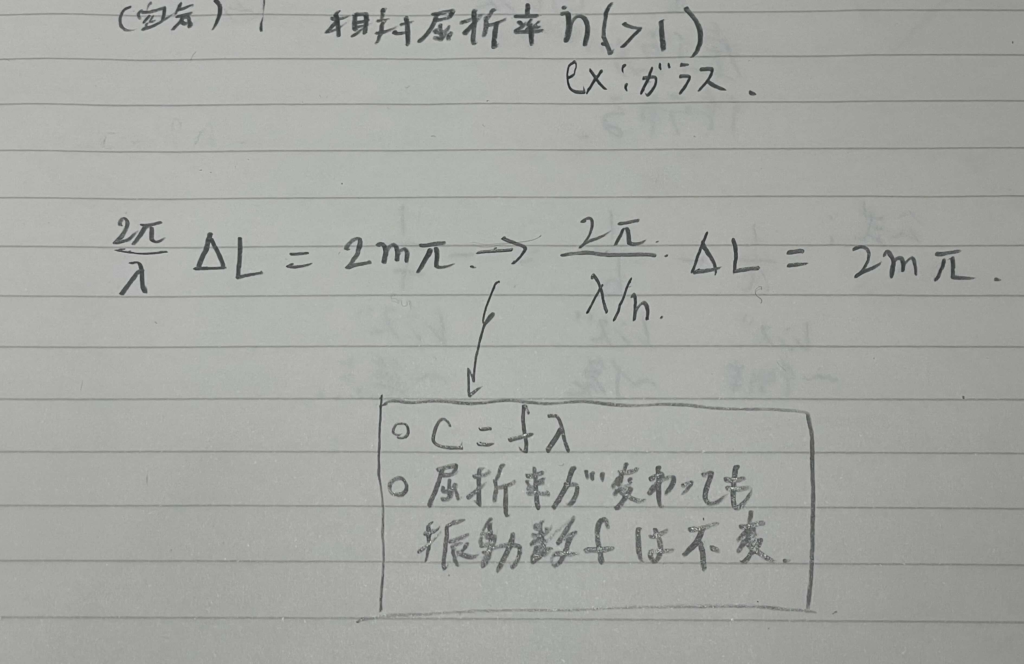 (空気) | 相対屈折率 n(>1)
ex:ガラス.
2π/λ ΔL = 2mπ. → 2π./λ/n. ΔL = 2mπ.
○ C = fλ
○ 屈折率が変わっても
振動数fは不変.